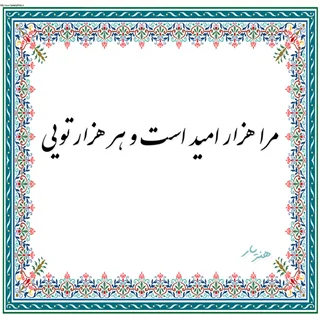 مرا هزار امید است و هر هزار تویی
هنریار